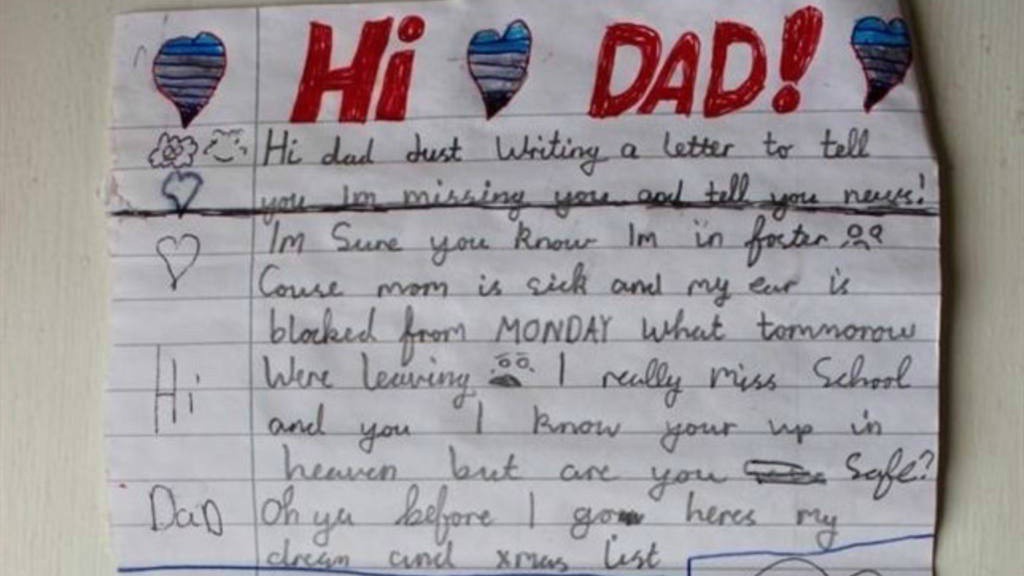 Hi DAD!
Hi dad Just Writing a letter to tell
you Im missing you and tell you news!
Im Sure you know Im in foster
Couse mom is sick and my ear is
blocked from MONDAY what tommorow
Were leaving I really miss School
Hi
and you I know your up in
heaven but are you safe?
Dad Oh ya before I go heres my
dream and xmas list